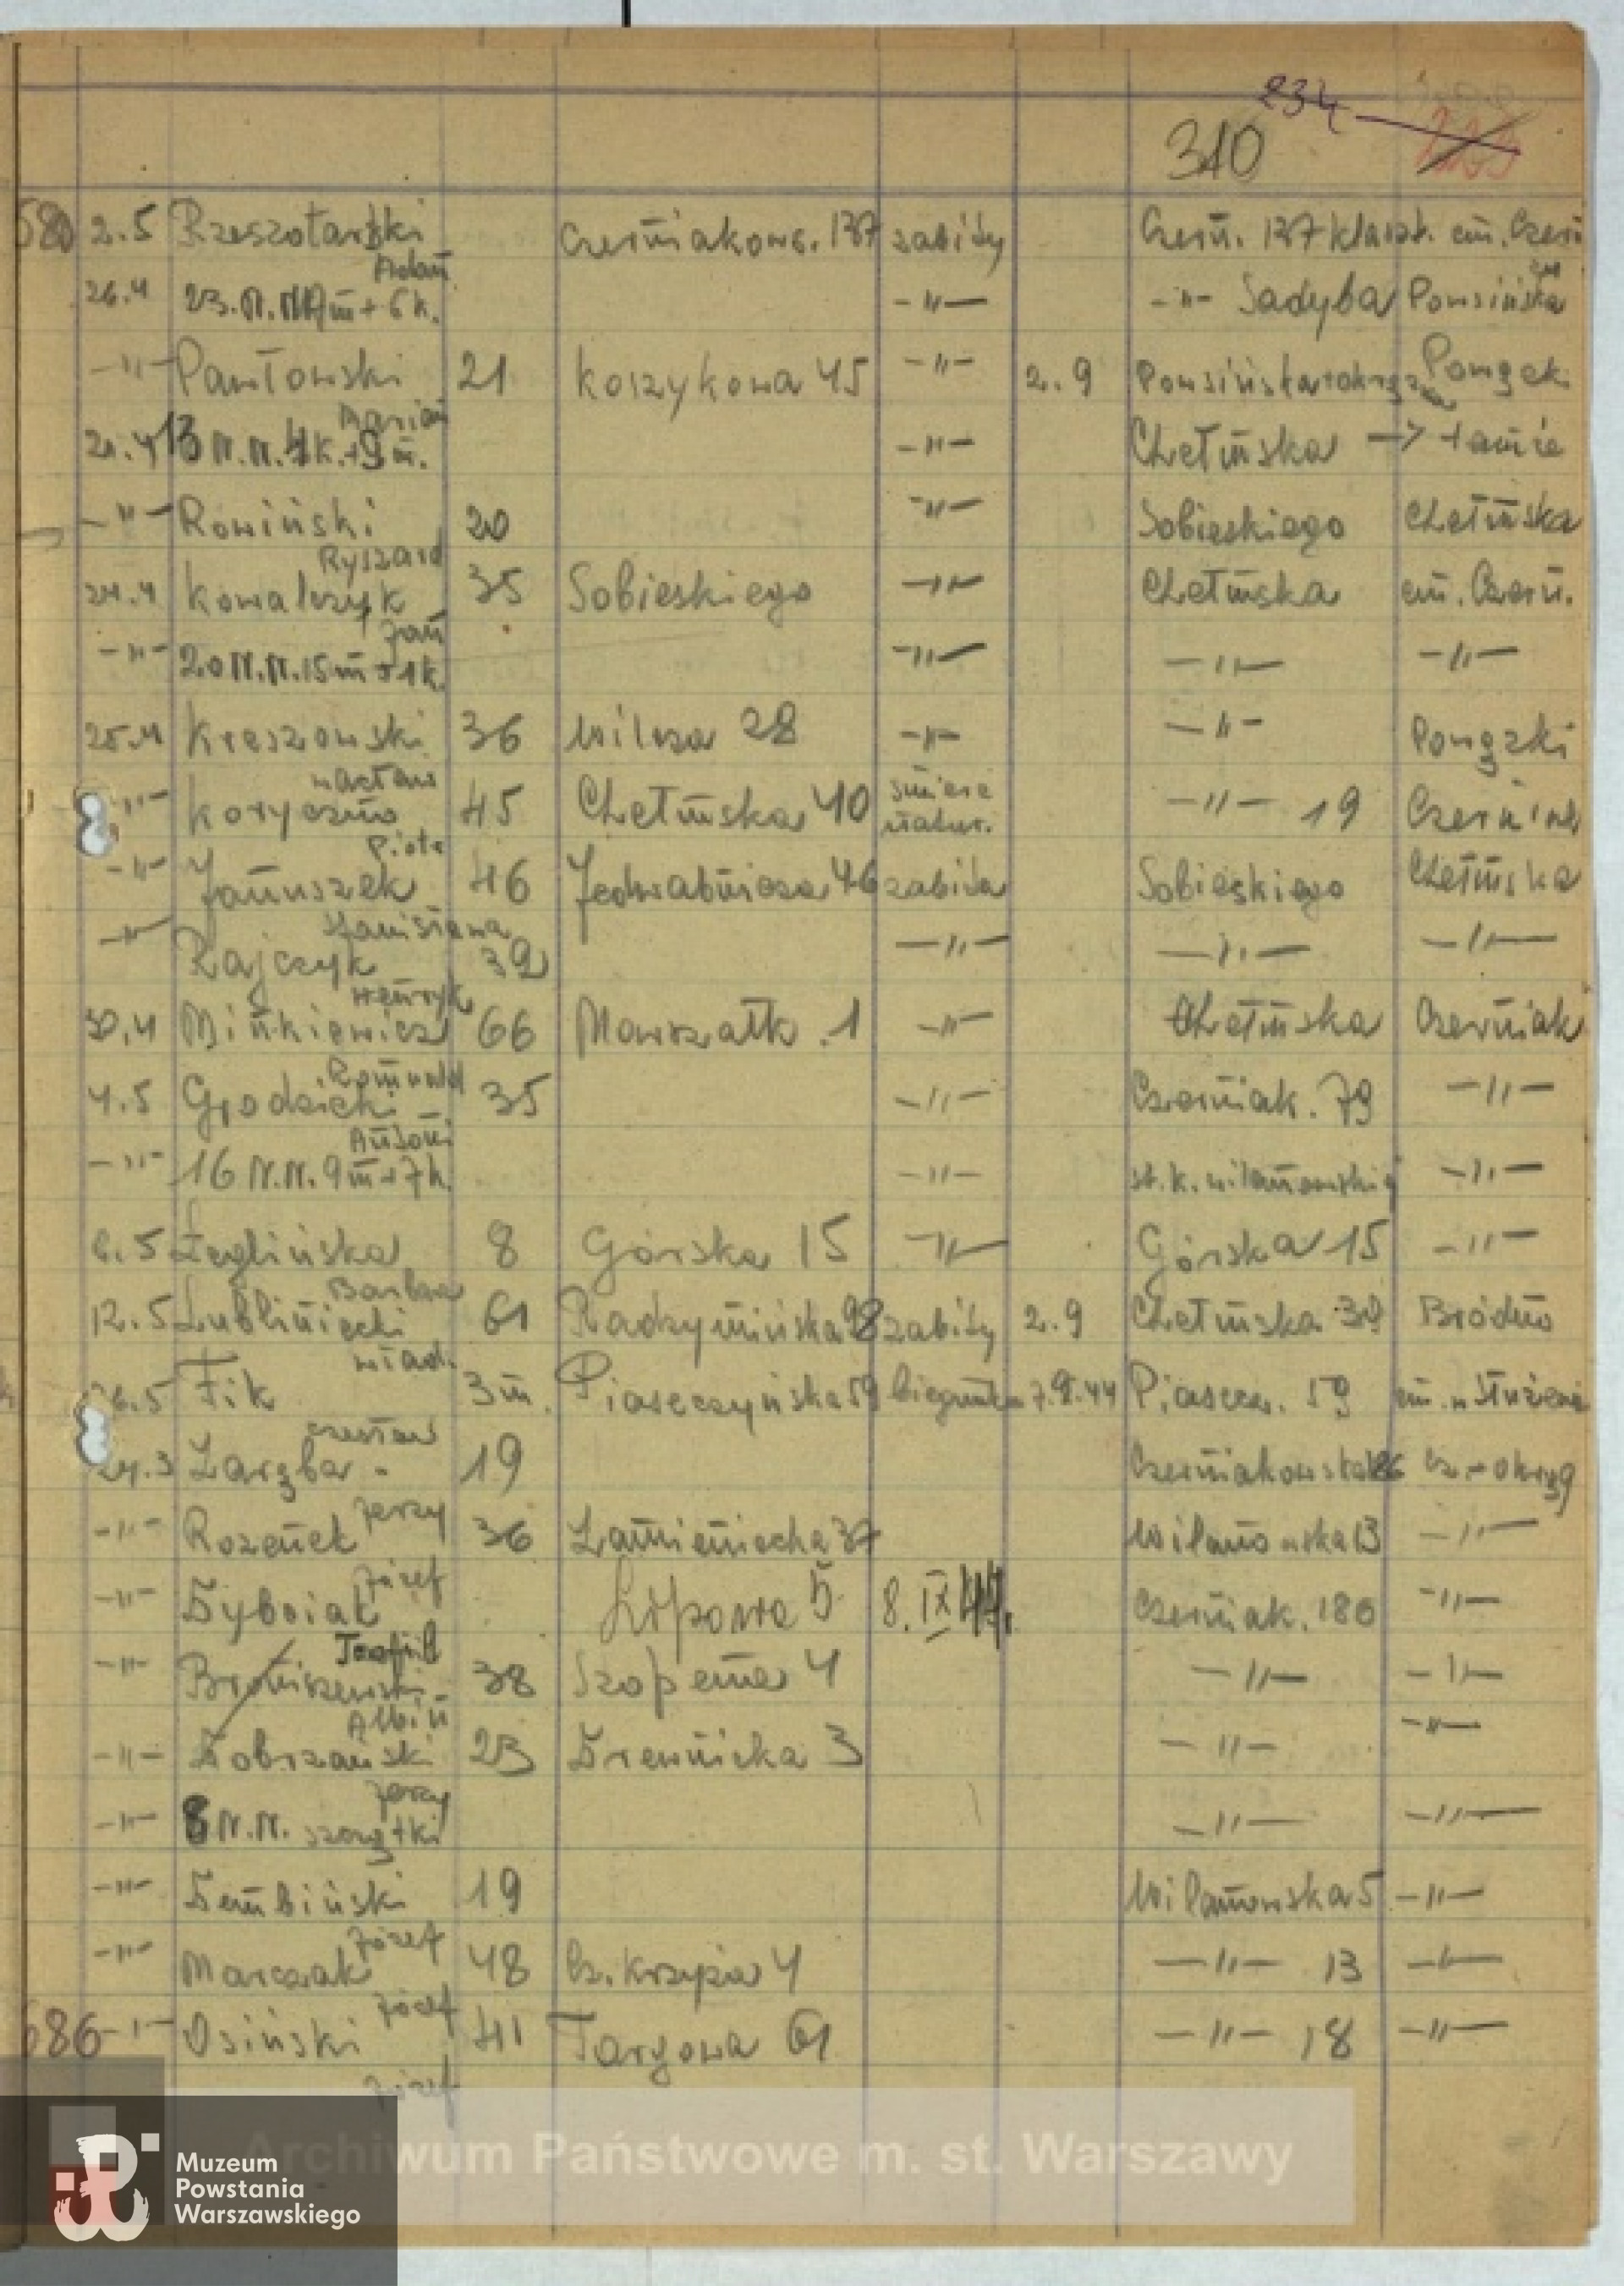 234 223
310
580 2.5 Rzeszotarski Czerniakows. 137 zabity Czern. 137 klaszt. cm. Czern
Adam
26.4 23.N.N. 17m + 6k. -"- -"- Sadyba Powsińska
-"- Pawłowski 21 Koszykowa 45 -"- 2.9 Powsińska Powązk
Marian
24.4 13 N.N. 4k.+9m. -"- Chełmska → tamże
-"- Rowiński 20 -"- Sobieskiego Chełmska
Ryszard
24.4 Kowalczyk 35 Sobieskiego -"- Chełmska cm. Czern.
Jan
-"- 20 N.N. 15m + 1k. -"- -"- -"-
25.4 Kreszowski 36 Wilcza 28 -"- -"- Powązki
Wacław
-"- Koryczno 45 Chełmska 40 śmierć natur. -"- 19 Czerniak
Piotr
-"- Januszek 46 Jedwabnicza 46 zabita Sobieskiego Chełmska
Stanisława
-"- Rajczyk 32 -"- -"- -"-
Henryk
30.4 Minkiewicz 66 Marszałk. 1 -"- Chełmska Czerniak
Romuald
4.5 Grodzicki 35 -"- Czerniak. 79 -"-
Antoni
-"- 16 N.N. 9m + 7k. -"- st. k. wilanowskiej -"-
6.5 Żeglińska 8 Górska 15 -"- Górska 15 -"-
Barbara
12.5 Lubliniecki 61 Radzymińska 98 zabity 2.9 Chełmska 39 Bródno
Wład.
26.5 Fik 3m. Piaseczyńska 59 biegunka 7.9.44 Piasecz. 59 cm. w Służewie
Czesław
24.3 Zaręba 19 Czerniakowska 186 Cz.-okrąg
Jerzy
-"- Rozenek 36 Zamieniecka 37 Wilanowska 13 -"-
Józef
-"- Dybciak Lipowa 5 8.IX 44. Czerniak. 186 -"-
Teofil
-"- Broniszewski 38 Szopena 4 -"- -"-
Albin
-"- Dobrzański 23 Drewnicka 3 -"- -"-
Jerzy
-"- 8 N.N. szczątki -"- -"-
-"- Dembiński 19 Wilanowska 5 -"-
Józef
-"- Marczak 48 Cz. Krzyża 4 -"- 13 -"-
Józef
586 -"- Osiński 41 Targowa 61 -"- 18 -"-
Józef
Archiwum Państwowe m. st. Warszawy
Muzeum
Powstania
Warszawskiego